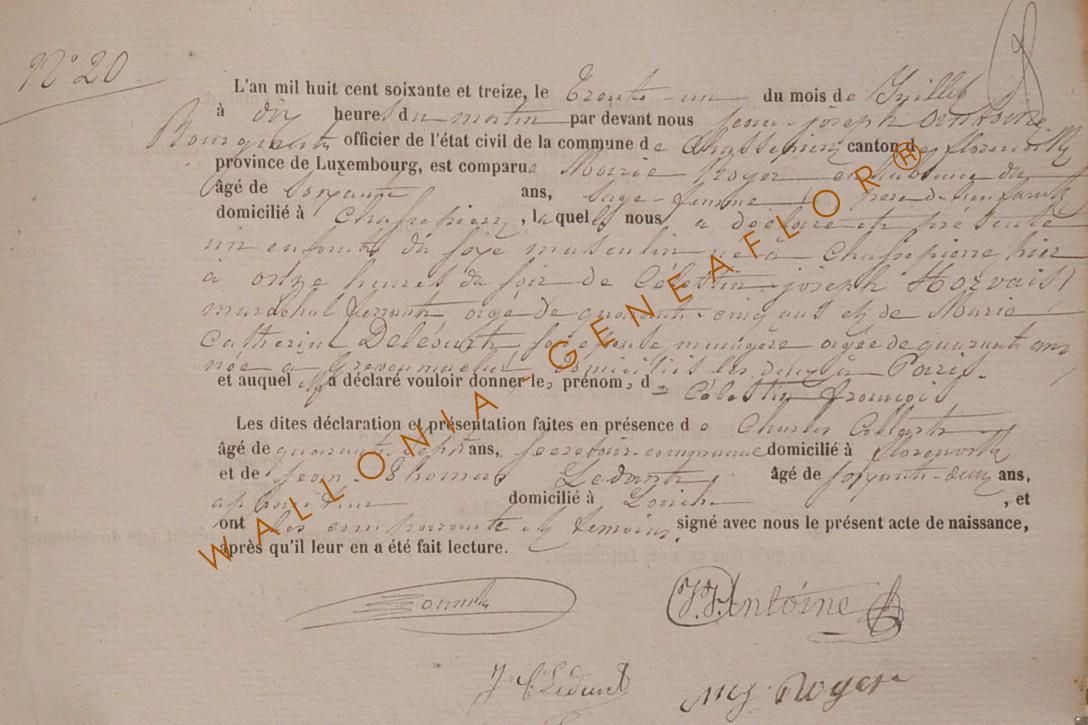 N° 20
L'an mil huit cent soixante et treize, le Trente-un du mois de Juillet
à dix heures du matin par devant nous Jean-joseph Antoine
Bourgmestre officier de l'état civil de la commune de Chassepierre canton de florenville
province de Luxembourg, est comparue Marie Roger en l'absence du
âgé de soixante ans, sage-femme père de l'enfant
domicilié à Chassepierre, laquelle nous a déclaré et présenté
un enfant du sexe masculin né à Chassepierre hier
à onze heures du soir de Célestin-joseph
maréchal ferrant agé de quarante-cinq ans et de Marie
Catherine son épouse ménagère agée de quarante ans
née à domiciliés les deux à Paris.
et auquel a déclaré vouloir donner les prénoms de Célestin françois
Les dites déclaration et présentation faites en présence de Charles
âgé de quarante-sept ans, secrétaire communal domicilié à florenville
et de Jean-Thomas Ledant âgé de soixante-deux ans,
domicilié à , et
ont les comparante et témoins signé avec nous le présent acte de naissance,
après qu'il leur en a été fait lecture.
J.J. Antoine
J T Ledant
Roger
WALLONIA-GENEAFLOR®